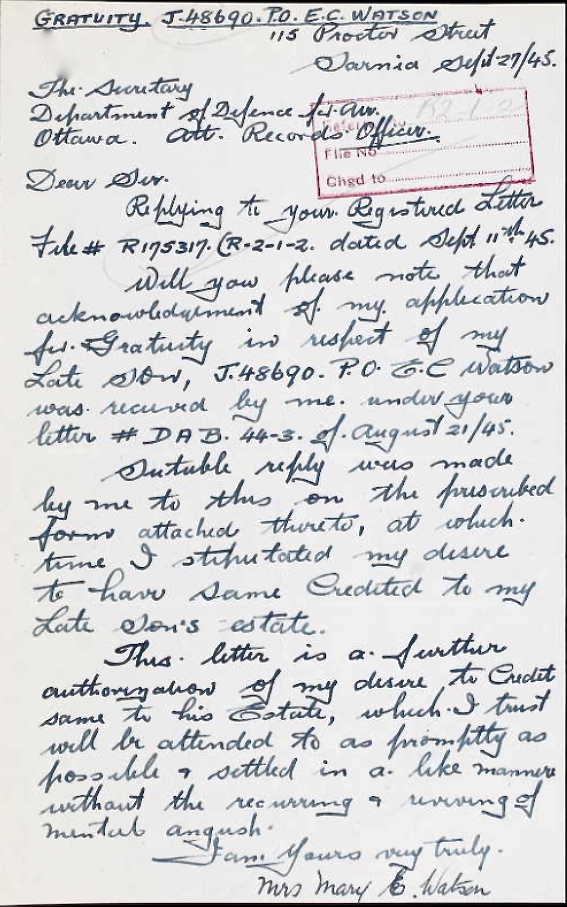 GRATUITY. J-48690. P.O. E.C. WATSON
115 Proctor Street
Sarnia Sept 27/45.
The Secretary
Department of Defence for Air.
Ottawa. Att. Records Officer.
R2-1-2
File No
Chgd to
Dear Sir.
Replying to your Registered Letter
File # R175317. (R-2-1-2. dated Sept 11th 45.
Will you please note that
acknowledgement of my application
for Gratuity in respect of my
Late Son, J.48690. P.O. E.C Watson
was received by me under your
letter # DAB. 44-3. of August 21/45.
Suitable reply was made
by me to this on the prescribed
form attached thereto, at which
time I stipulated my desire
to have same Credited to my
Late Son's estate.
This letter is a further
authorization of my desire to Credit
same to his Estate, which I trust
will be attended to as promptly as
possible & settled in a like manner
without the recurring & reviving of
mental angush.
I am Yours very truly.
Mrs Mary E. Watson